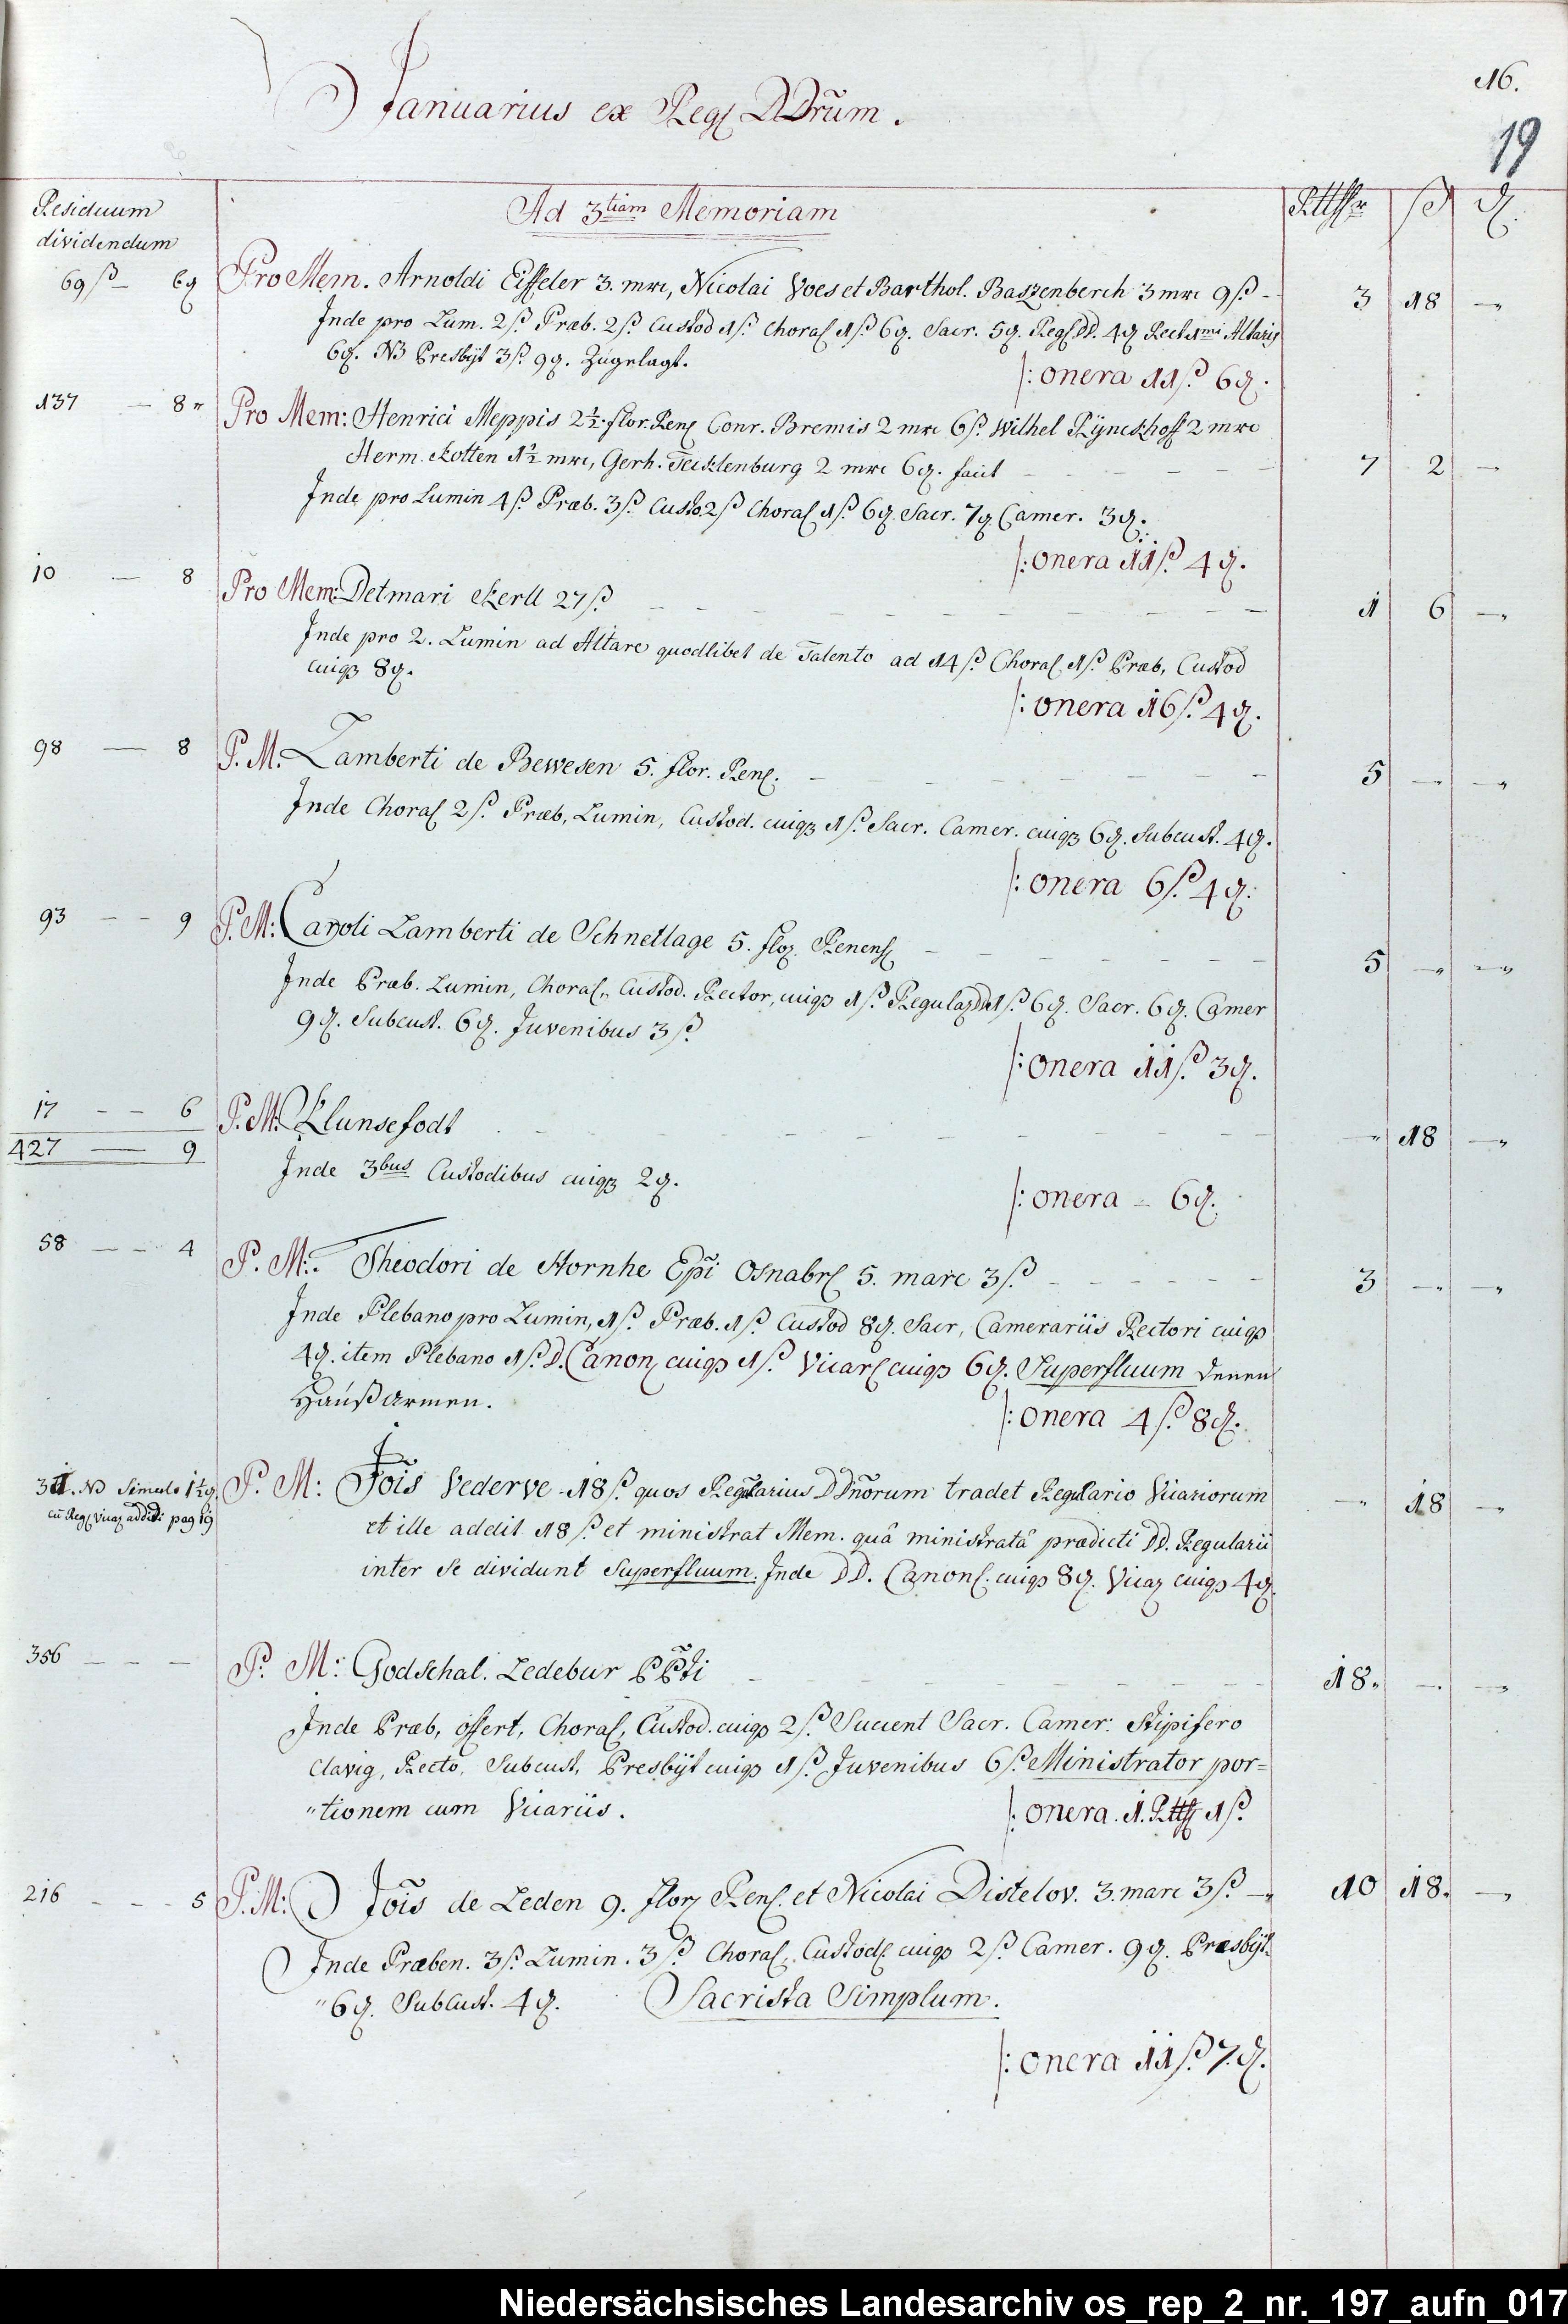 16.
19
Januarius ex Reg DDrum.
Residuum
dividendum
Ad 3tiam Memoriam
Rtthlr ß ₰
69 ß – 6 ₰ Pro Mem. Arnoldi Eiffeler 3. mrc, Nicolai Voes et Barthol. Baszenberch 3 mrc 9 ß – 3 18 –
Inde pro Lum. 2 ß. Præb. 2 ß Custod 1 ß. Choral 1 ß. 6 ₰. Sacr. 5 ₰. Reg DD. 4 ₰ Rect. 1mi Altaris
6 ₰. NB Presbijt 3 ß. 9 ₰. Zugelagt.
/: onera 11 ß. 6 ₰.
137 – 8 " Pro Mem: Henrici Meppis 2½ flor. Ren Conr. Bremis 2 mrc 6 ß. Wilhel Rÿnckhoff 2 mrc
Herm. Kotten 1½ mrc, Gerh. Tecklenburg 2 mrc 6 ₰. facit – 7 2 –
Inde pro Lumin 4 ß. Præb. 3 ß. Custo. 2 ß Choral 1 ß. 6 ₰. Sacr. 7 ₰. Camer. 3 ₰.
/: onera 11 ß. 4 ₰.
10 – 8 Pro Mem: Detmari Kerll 27 ß. – 1 6 –
Inde pro 2. Lumin ad Altare quodlibet de Talento ad 14 ß. Choral, 1 ß. Præb, Custod
cuiq3 8 ₰.
/: onera 16 ß. 4 ₰.
98 – 8 P. M. Lamberti de Bewesen 5. flor. Ren. – 5 – –
Inde Choral 2 ß. Præb, Lumin, Custod. cuiq3 1 ß. Sacr. Camer. cuiq3 6 ₰. Subcust. 4 ₰.
/: onera 6 ß. 4 ₰:
93 – – 9 P. M: Caroli Lamberti de Schnetlage 5. flor. Renens – 5 – –
Inde Præb. Lumin, Choral, Custod. Rector, cuiq3 1 ß. Regular DD 1 ß. 6 ₰. Sacr. 6 ₰. Camer
9 ₰. Subcust. 6 ₰. Juvenibus 3 ß.
/: onera 11 ß. 3 ₰.
17 – – 6 P. M. Klunsefodt – – 18 –
427 – 9
Inde 3bus Custodibus cuiq3 2 ₰.
/: onera – 6 ₰.
58 – – 4 P. M: Theodori de Hornhe Epĩ Osnabr 5. marc 3 ß. – 3 – –
Inde Plebano pro Lumin, 1 ß. Præb. 1 ß. Custod 8 ₰. Sacr, Camerariis Rectori cuiq3
4 ₰. item Plebano 1 ß. D. Canon cuiq3 1 ß. Vicar cuiq3 6 ₰. Superfluum denen
Haußarmen.
/: onera 4 ß. 8 ₰.
NB Simulo 1½ ₰. P. M: Jois Vederve 18 ß. quos Regularius DDnorum tradet Regulario Vicariorum – 18 –
cũ Reg Vicar addidi pag 19
et ille addit 18 ß. et ministrat Mem. quâ ministratâ prædicti DD. Regularii
inter se dividunt Superfluum. Inde DD. Canon. cuiq3 8 ₰. Vicar cuiq3 4 ₰.
356 – – – P. M: Godschal. Ledebur PPti – 18. – –
Inde Præb, offert, Choral, Custod. cuiq3 2 ß. Succent Sacr. Camer. Stipifero
Clavig, Recto, Subcust, Presbijt cuiq3 1 ß. Juvenibus 6 ß. Ministrator por=
"tionem cum Vicariis.
/: onera. 1. Rtth 1 ß.
216 – – – 5 P. M: Jois de Leden 9. flor Ren. et Nicolai Distelov. 3. marc 3 ß. – 10 18. –
Inde Præben. 3 ß. Lumin. 3 ß. Choral, Custod. cuiq3 2 ß. Camer. 9 ₰. Præsbijt.
"6 ₰. Subcust. 4 ₰. Sacrista Simplum.
/: onera 11 ß. 7. ₰.
Niedersächsisches Landesarchiv os_rep_2_nr._197_aufn_017